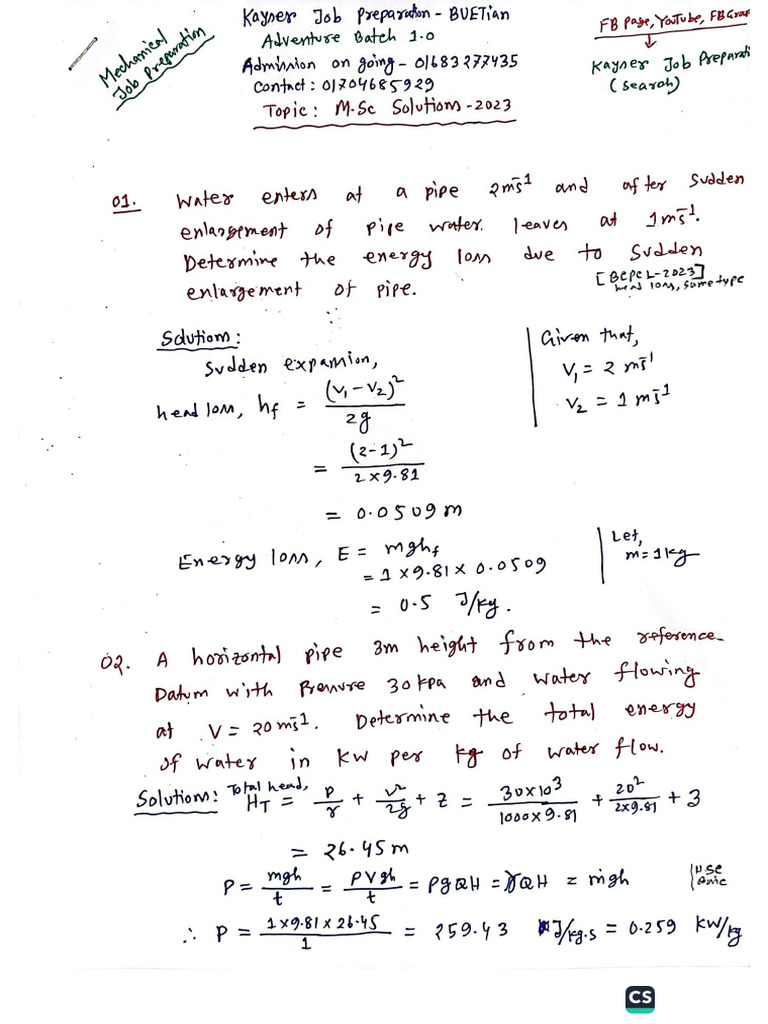 Mechanical
Job Preparation
Kayser Job Preparation - BUETian
Adventure Batch 1.0
Admission on going - 01683277435
Contact : 01704685929
Topic : M.Sc Solutions - 2023
FB Page, YouTube, FB Gra
↓
Kayser Job Preparati
(search)
01. Water enters at a pipe 2ms⁻¹ and after sudden
enlargement of pipe water leaves at 1ms⁻¹.
Determine the energy loss due to sudden
enlargement of pipe. [BCPCL-2023]
head loss, same type
Solution:
Sudden expansion,
head loss, hf = (V₁ - V₂)² / 2g
= (2-1)² / 2×9.81
= 0.0509 m
Given that,
V₁ = 2 ms⁻¹
V₂ = 1 ms⁻¹
Energy loss, E = mghf
= 1 × 9.81 × 0.0509
= 0.5 J/kg.
Let,
m = 1kg
02. A horizontal pipe 3m height from the reference
Datum with Pressure 30 kpa and water flowing
at V = 20 ms⁻¹. Determine the total energy
of water in kw per kg of water flow.
Solution: Total head, H_T = P/γ + V²/2g + Z = 30×10³ / 1000×9.81 + 20² / 2×9.81 + 3
= 26.45 m
P = mgh/t = ρVgh/t = ρgQH = γQH = ṁgh
∴ P = 1×9.81×26.45 / 1 = 259.43 J/kg.s = 0.259 KW/kg
CS